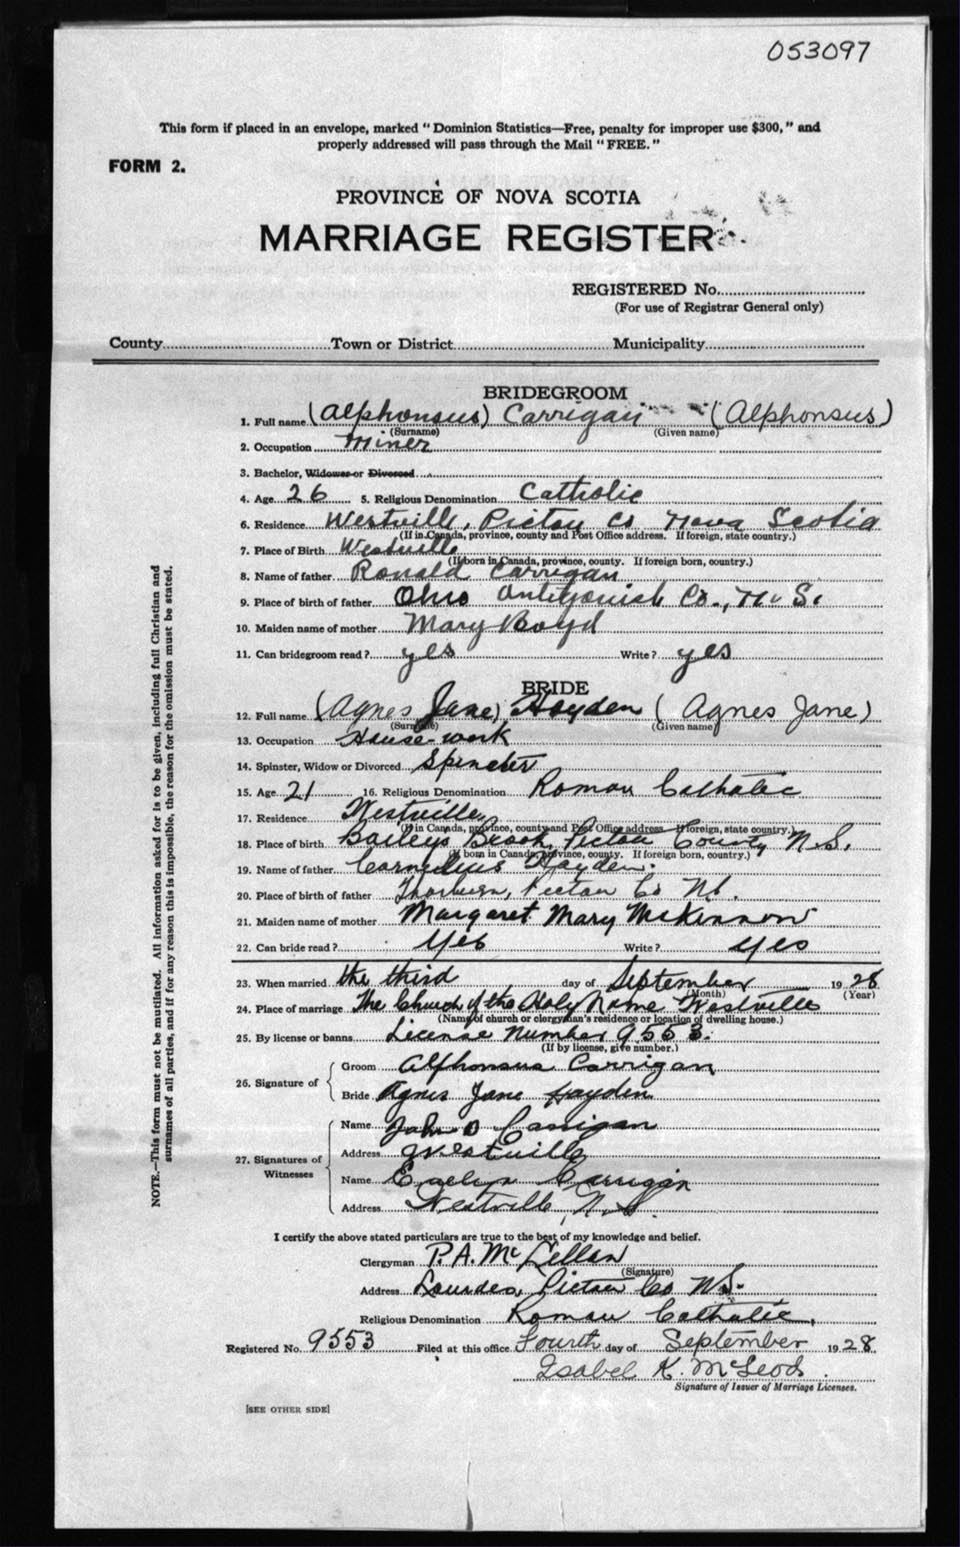 053097
This form if placed in an envelope, marked "Dominion Statistics—Free, penalty for improper use $300," and
properly addressed will pass through the Mail "FREE."
FORM 2.
PROVINCE OF NOVA SCOTIA
MARRIAGE REGISTER
REGISTERED No.
(For use of Registrar General only)
County Town or District Municipality
BRIDEGROOM
1. Full name (Alphonsus) Carrigan (Alphonsus)
(Surname) (Given name)
2. Occupation Miner
3. Bachelor, Widower or Divorced
4. Age 26 5. Religious Denomination Catholic
6. Residence Westville, Pictou Co Nova Scotia
(If in Canada, province, county and Post Office address. If foreign, state country.)
7. Place of Birth Westville
(If born in Canada, province, county. If foreign born, country.)
8. Name of father Ronald Carrigan
9. Place of birth of father Ohio Antigonish Co., N. S.
10. Maiden name of mother Mary Boyd
11. Can bridegroom read? yes Write? yes
BRIDE
12. Full name (Agnes Jane) Hayden (Agnes Jane)
(Surname) (Given name)
13. Occupation House-work
14. Spinster, Widow or Divorced Spinster
15. Age 21 16. Religious Denomination Roman Catholic
17. Residence Westville
(If in Canada, province, county and Post Office address. If foreign, state country.)
18. Place of birth Baileys Brook, Pictou County N.S.
(If born in Canada, province, county. If foreign born, country.)
19. Name of father Cornelius Hayden.
20. Place of birth of father Thorburn, Pictou Co NS.
21. Maiden name of mother Margaret Mary McKinnon
22. Can bride read? Yes Write? yes
23. When married the third day of September 1928
(Month) (Year)
24. Place of marriage The Church of the Holy Name Westville
(Name of church or clergyman's residence or location of dwelling house.)
25. By license or banns License Number 9553.
(If by license, give number.)
26. Signature of
Groom Alphonsus Carrigan
Bride Agnes Jane Hayden
27. Signatures of Witnesses
Name John D Carrigan
Address Westville
Name Evelyn Carrigan
Address Westville, N.S.
I certify the above stated particulars are true to the best of my knowledge and belief.
Clergyman P. A. McLellan
(Signature)
Address Lourdes, Pictou Co NS.
Religious Denomination Roman Catholic.
Registered No. 9553 Filed at this office Fourth day of September 1928
Isabel K. McLeod.
Signature of Issuer of Marriage Licenses.
[SEE OTHER SIDE]
NOTE.—This form must not be mutilated. All information asked for is to be given, including full Christian and
surnames of all parties, and if for any reason this is impossible, the reason for the omission must be stated.